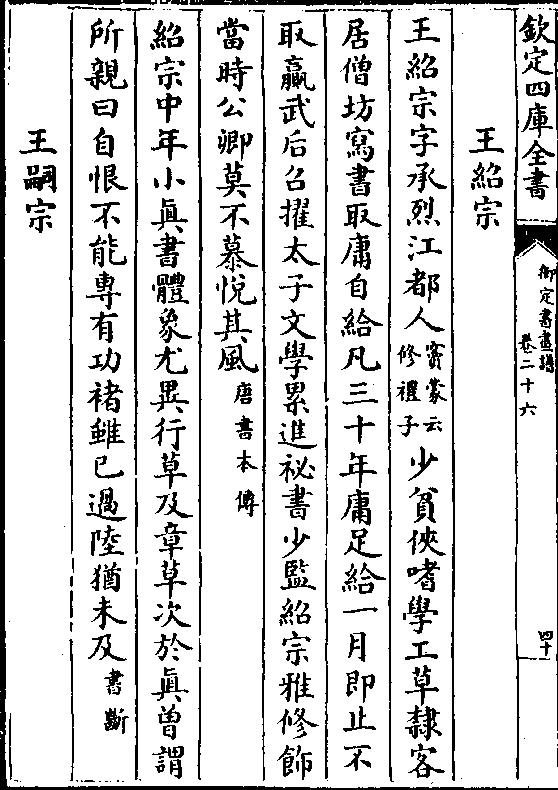 欽定四庫全書
御定書畫譜
卷二十六
四十
王紹宗
王紹宗字承烈江都人竇蒙云修禮子少貧俠嗜學工草隸客
居僧坊寫書取庸自給凡三十年庸足給一月即止不
取贏武后召擢太子文學累進祕書少監紹宗雅修飾
當時公卿莫不慕悅其風唐書本傳
紹宗中年小眞書體象尤異行草及章草次於眞曾謂
所親曰自恨不能專有功褚雖已過陸猶未及書斷
王嗣宗